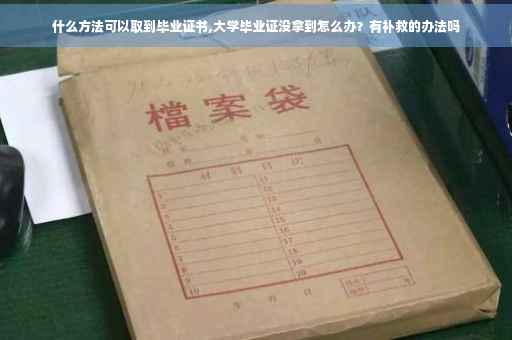 什么方法可以取到毕业证书,大学毕业证没拿到怎么办？有补救的办法吗
檔案袋
材料目次
1 11
2 12
3 13
4 14
5 15
6 16
7 17
8 18
9 19
10 20
年 月 日